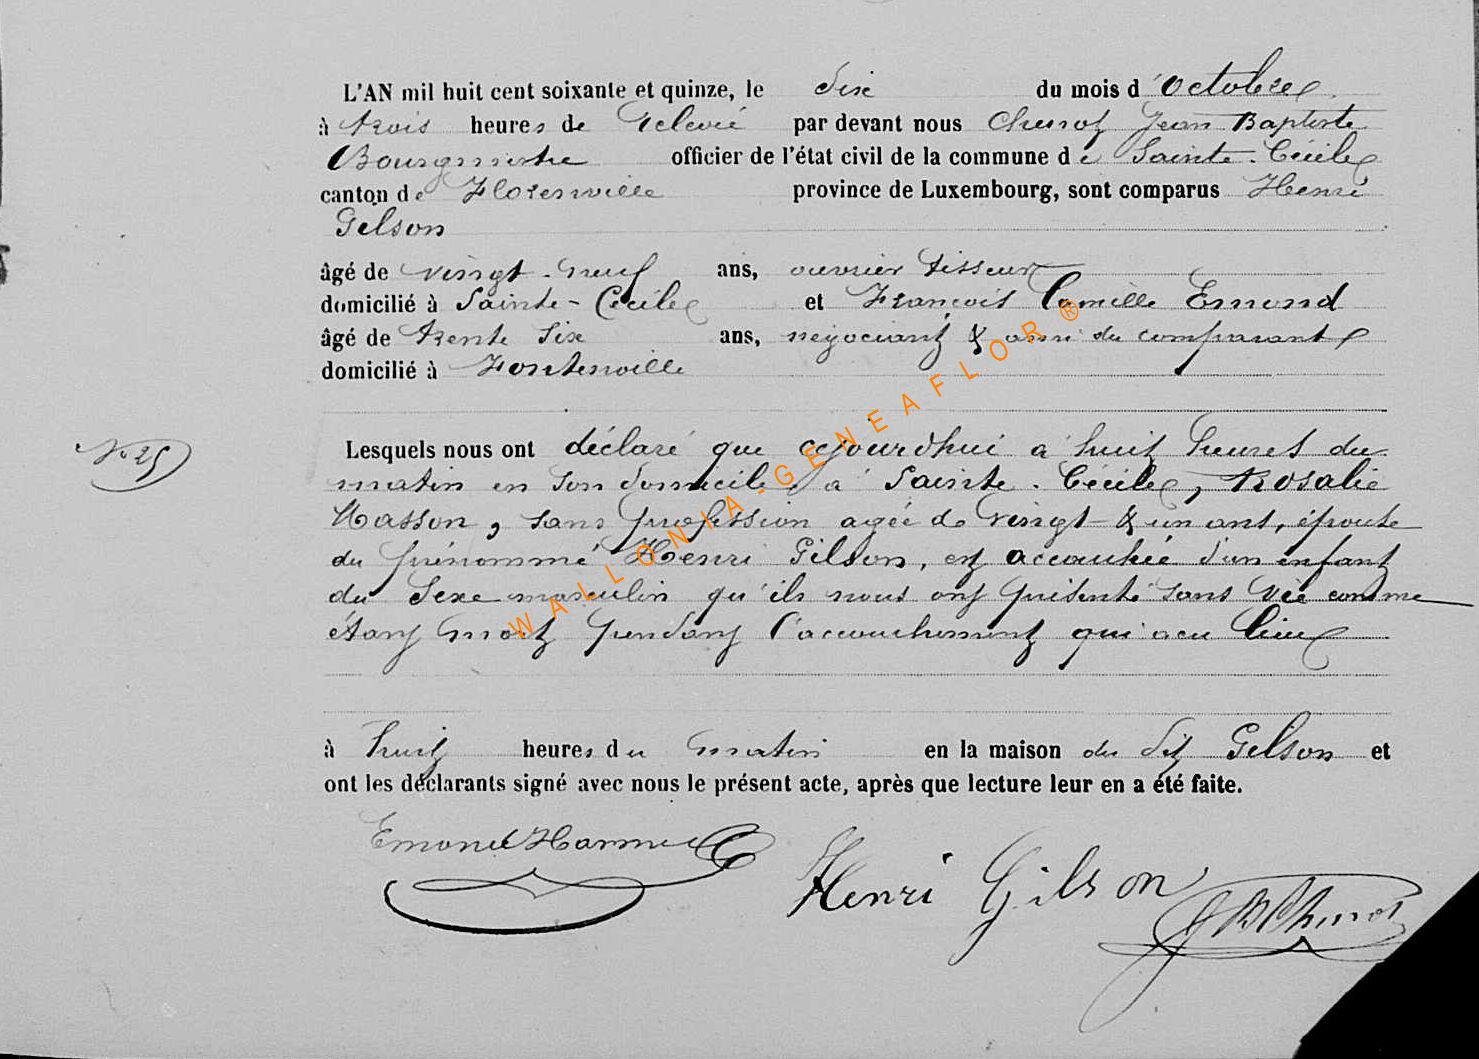 L'AN mil huit cent soixante et quinze, le Six du mois d'Octobre
à trois heures de Relevée par devant nous Chenot Jean Baptiste
Bourgmestre officier de l'état civil de la commune de Sainte-Cécile
canton de Florenville province de Luxembourg, sont comparus Henri
Gilson
âgé de vingt-neuf ans, ouvrier tisseur
domicilié à Sainte-Cécile et François Camille Emond
âgé de trente Six ans, négociant & ami du comparant
domicilié à Fontenoille
No 25
Lesquels nous ont déclaré que cejourdhui à huit heures du
matin en son domicile à Sainte-Cécile, Rosalie
Masson, sans profession agée de vingt & un ans, épouse
du prénommé Henri Gilson, est accouchée d'un enfant
du Sexe masculin qu'ils nous ont présenté sans vie comme
étant mort pendant l'accouchement qui a eu lieu
à huit heures du matin en la maison du dit Gilson et
ont les déclarants signé avec nous le présent acte, après que lecture leur en a été faite.
Emond Henri Gilson JB Chenot
WALLONIA-GENEAFLOR®